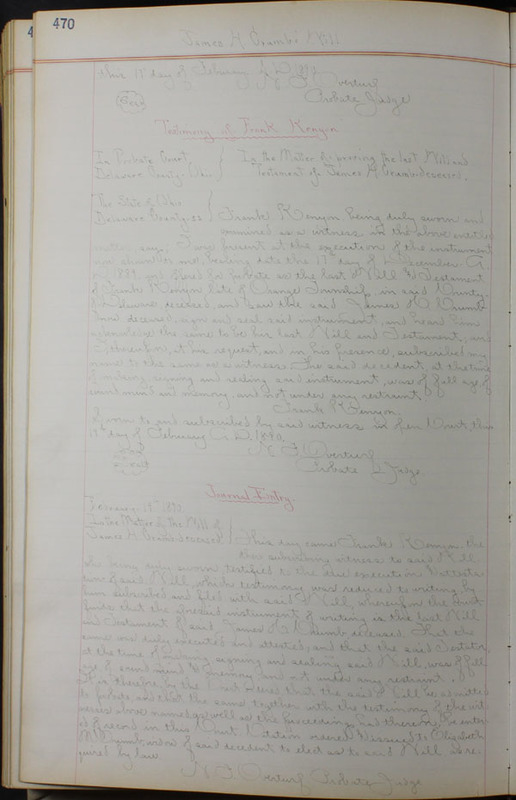 470
4
James H Crumb's Will
this 17" day of February A D 1890
Seal
N F Overturf
Probate Judge
Testimony of Frank Kenyon
In Probate Court, In the Matter of proving the last Will and
Delaware County, Ohio Testament of James H Crumb deceased.
The State of Ohio
Delaware County ss Frank Kenyon being duly sworn and
examined as a witness in the above entitled
matter says I was present at the execution of the instrument
now shown to me, bearing date the 17" day of December A
D 1889 and offered for probate as the last Will & Testament
of Frank Kenyon late of Orange Township in said County
of Delaware deceased, and saw the said James H Crumb
now deceased, sign and seal said instrument, and heard him
acknowledge the same to be his last Will and Testament, and
I thereupon, at his request, and in his presence, subscribed my
name to the same as a witness. The said decedent, at the time
of making, signing and sealing said instrument, was of full age, of
sound mind and memory, and not under any restraint.
Frank Kenyon.
Sworn to and subscribed by said witness in Open Court, this
day of February A. D. 1890.
Seal
N F Overturf
Probate Judge
Journal Entry.
February 1890.
In the Matter of the Will of
James H Crumb deceased This day came Frank Kenyon the
subscribing witness to said Will
who being duly sworn testified to the due execution & attesta-
tion of said Will, which testimony was reduced to writing by
him subscribed and filed with said Will, whereupon the Court
finds that the aforesaid instrument of writing is the last Will
and Testament of said James H Crumb deceased. That the
same was duly executed and attested, and that the said Testator,
at the time of making, signing and sealing said Will, was of full
age of sound mind & memory and not under any restraint.
It is therefore by the Court ordered that the said Will be admitted
to probate, and that the same together with the testimony of the wit-
nesses above named as well as the proceedings had thereon be enter-
ed of record in this Court. Citation ordered & issued to Elizabeth
Crumb, widow of said decedent to elect as to said Will as re-
quired by law
N F Overturf Probate Judge